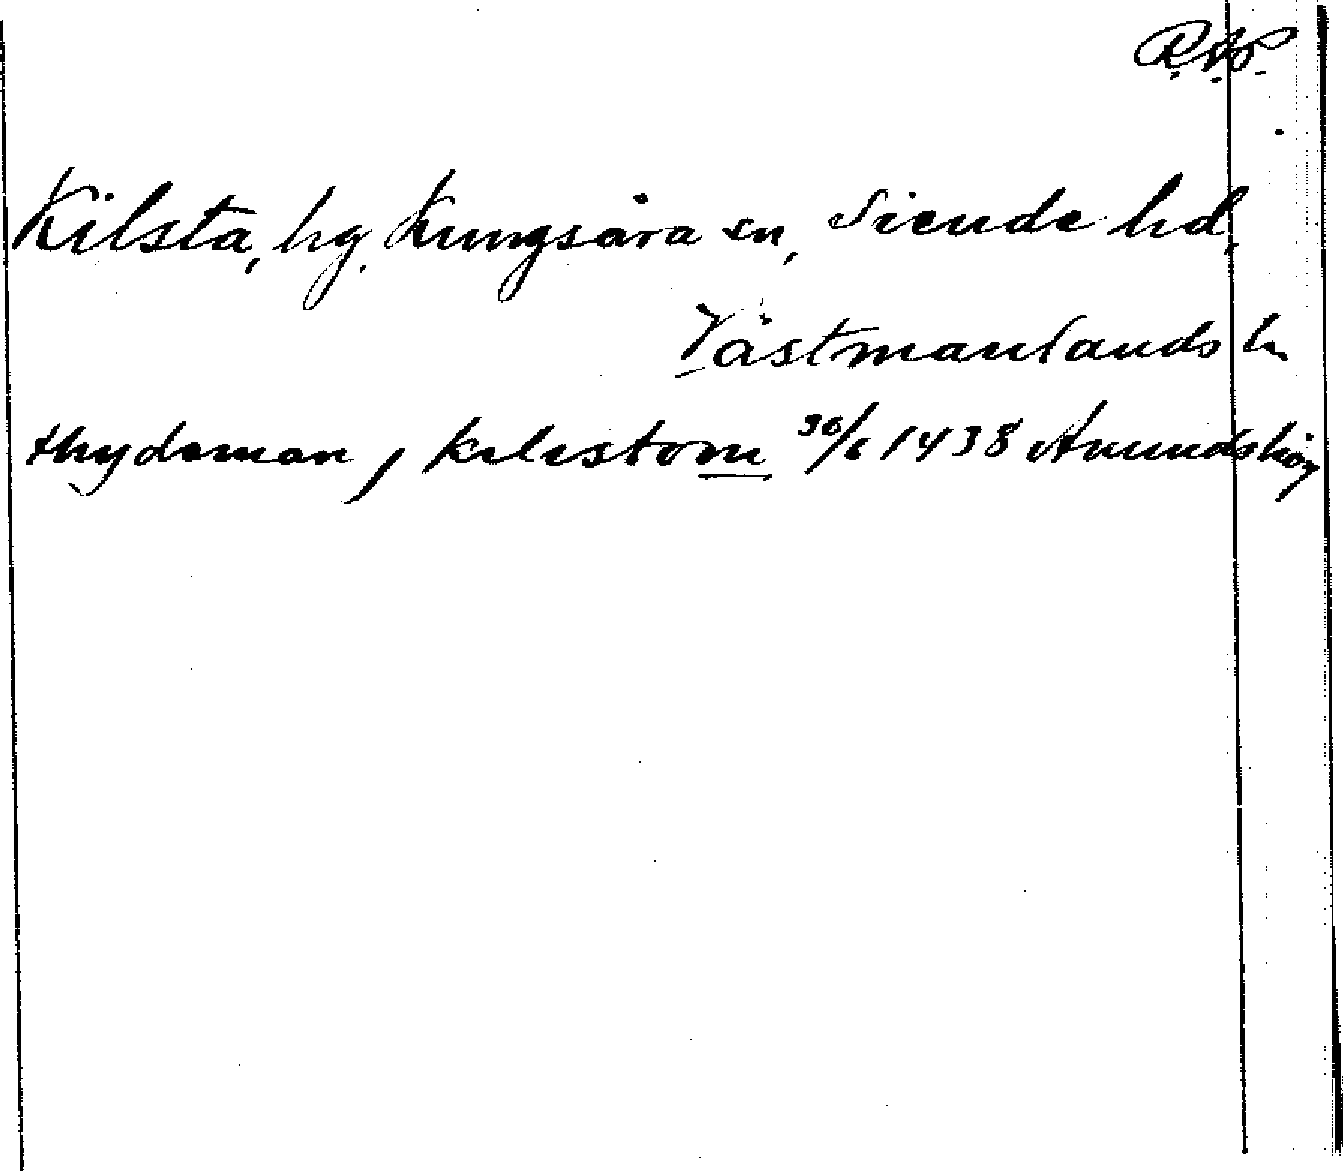 R.A.P.
Kilsta, hg, Kungsåra sn, Siende hd,
Västmanlands l.
thydeman j kilestom 30/6 1438 Anundshög